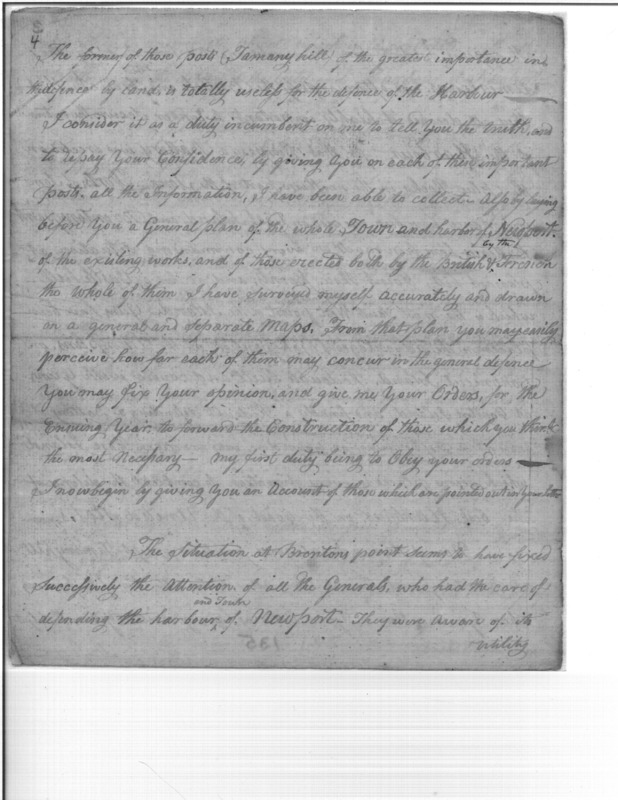 4
The former of those posts (Tamany hill) of the greatest importance in
the defence by land, is totally useless for the defence of the Harbour
I consider it as a duty incumbent on me to tell You the truth, and
to repay Your Confidence, by giving You on each of these important
posts all the Information, I have been able to collect - Also by laying
before You a General plan of the whole Town and harbor of Newport.
of the existing works, and of those erected both by the British & by the French
the whole of them I have surveyed myself accurately and drawn
on a general and separate Maps. From that plan you may easily
perceive how far each of them may concur in the general defence
You may fix Your opinion, and give me Your Orders, for the
Ensuing Year, to forward the Construction of those which you think
the most Necessary - my first duty being to Obey your orders
I now begin by giving You an Account of those which are pointed out in Your letter
The Situation at Brentons point seems to have fixed
successively the Attention of all the Generals, who had the care of
defending the harbour and Town of Newport - They were aware of its
utility
135